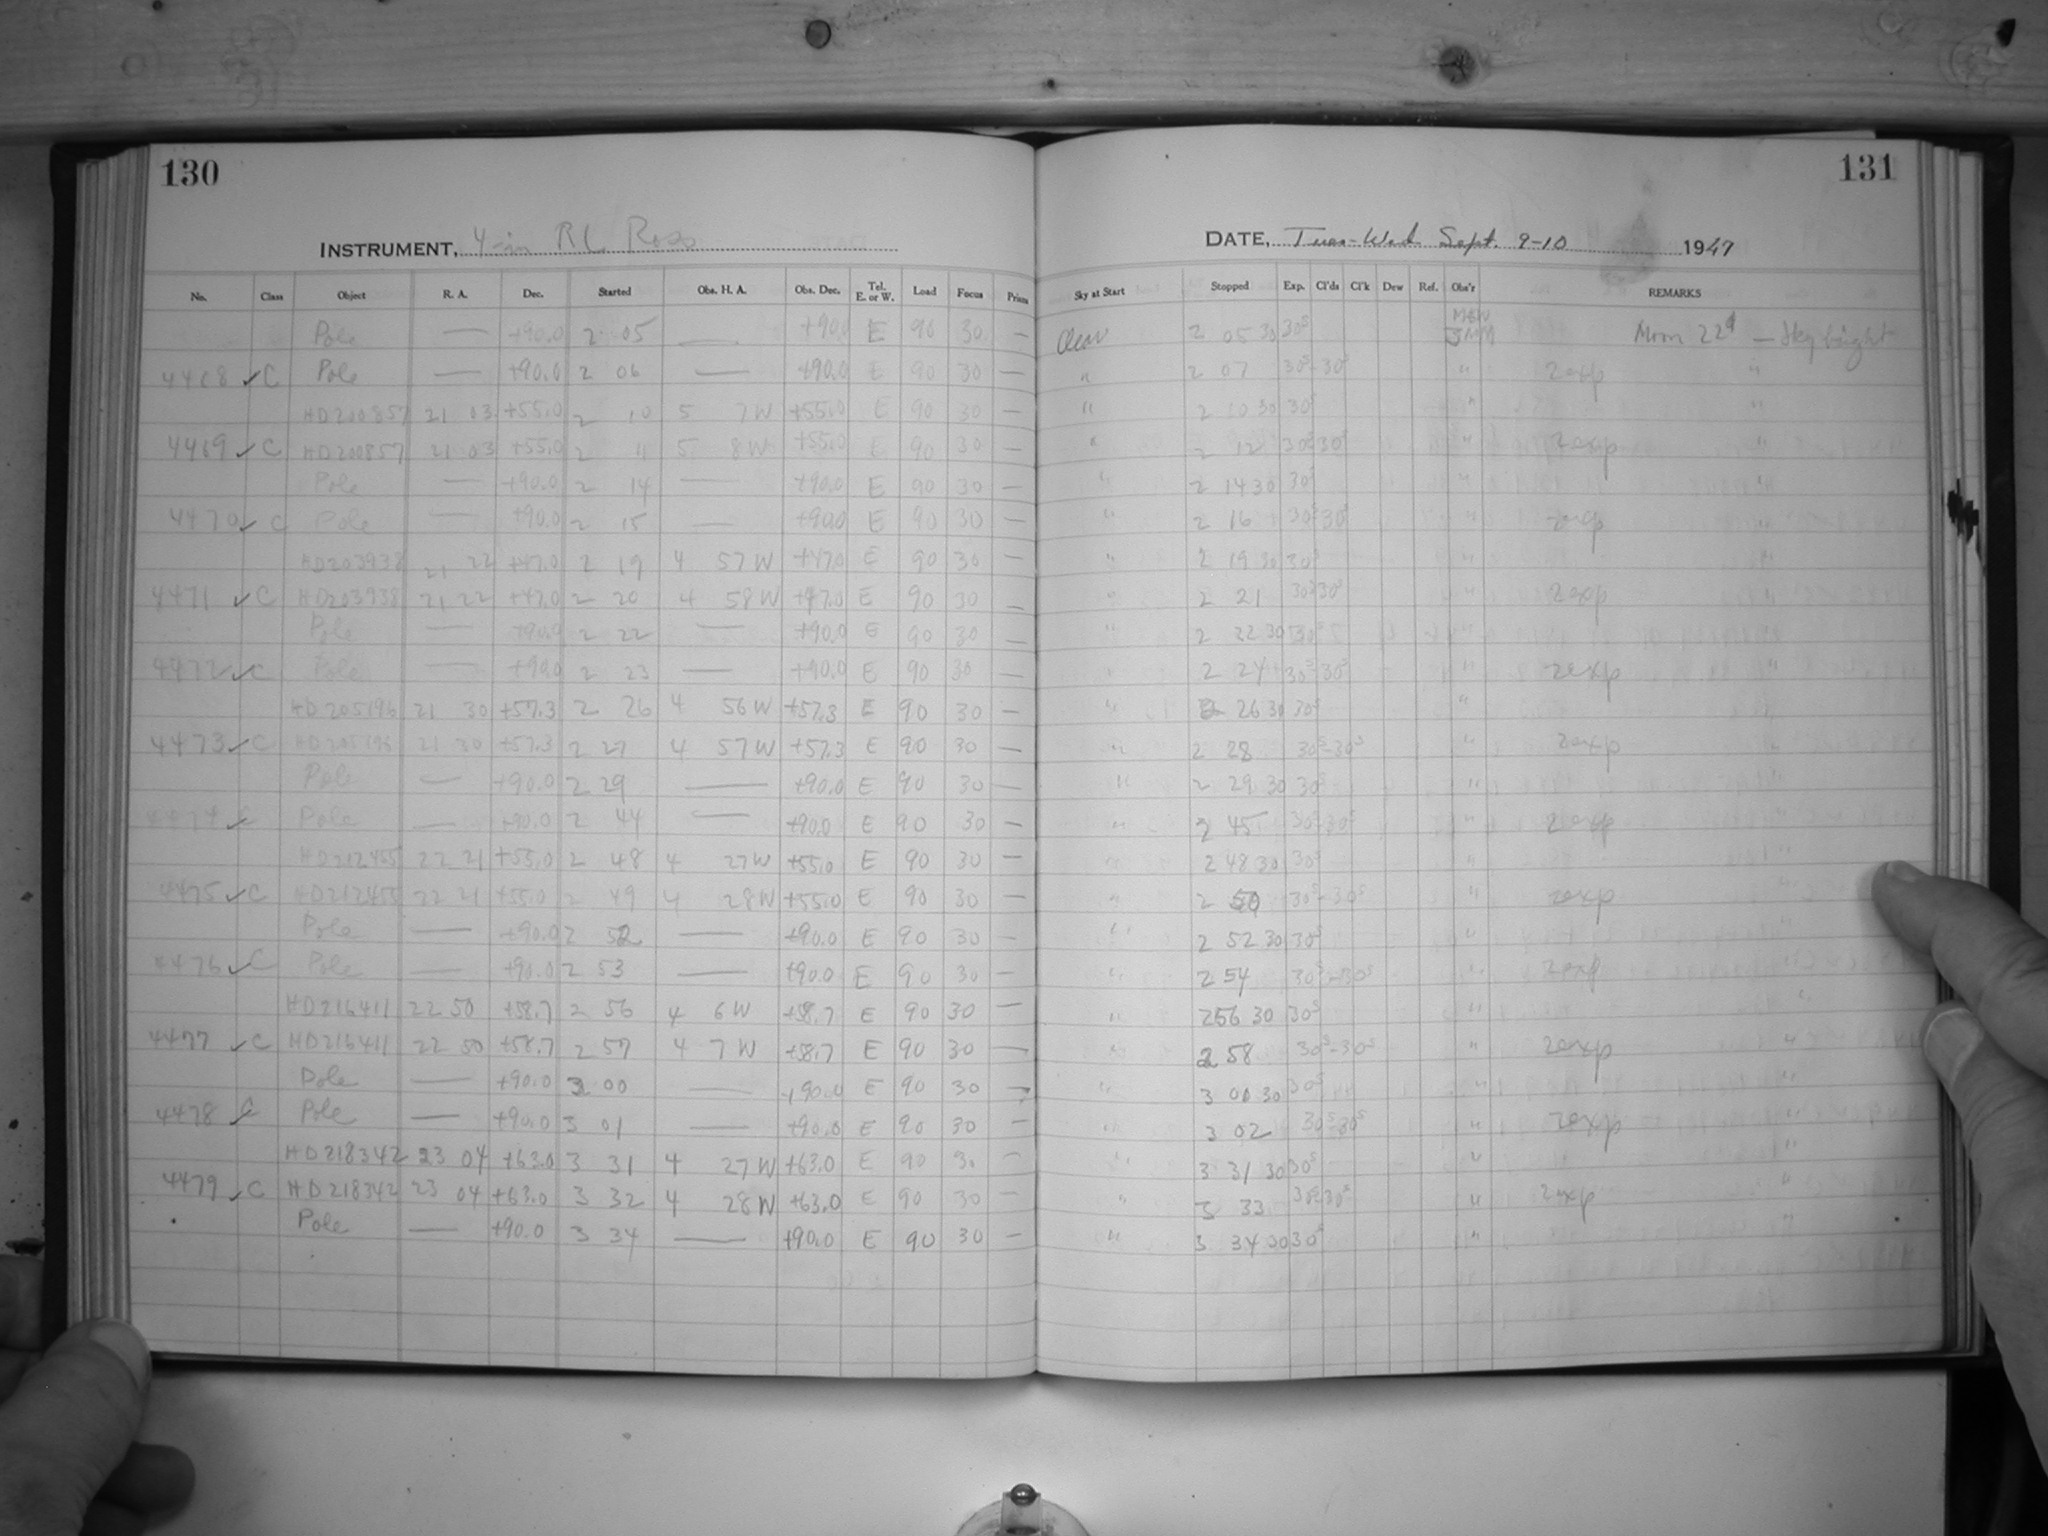 130
131
INSTRUMENT, 4-in RL Ross
DATE, Tues-Wed Sept. 9-10 1947
No. Class Object R. A. Dec. Started Obs. H. A. Obs. Dec. Tel. E. or W. Load Focus Prism Sky at Start Stopped Exp. Cl'ds Cl'k Dew Ref. Obs'r REMARKS
Pole — +90.0 2 05 — +90.0 E 90 30 — Clear 2 05 30 30s Moon 22d — Sky bright
4468 ✓ C Pole — +90.0 2 06 — +90.0 E 90 30 — " 2 07 30s-30s " 2 exp "
HD200857 21 03 +55.0 2 10 5 7W +55.0 E 90 30 — " 2 10 30 30s " "
4469 ✓ C HD200857 21 03 +55.0 2 11 5 8W +55.0 E 90 30 — " 2 12 30s-30s " 2 exp "
Pole — +90.0 2 14 — +90.0 E 90 30 — " 2 14 30 30s " "
4470 ✓ C Pole — +90.0 2 15 — +90.0 E 90 30 — " 2 16 30s-30s " 2 exp "
HD203938 21 22 +47.0 2 19 4 57W +47.0 E 90 30 — " 2 19 30 30s " "
4471 ✓ C HD203938 21 22 +47.0 2 20 4 58W +47.0 E 90 30 — " 2 21 30s-30s " 2 exp "
Pole — +90.0 2 22 — +90.0 E 90 30 — " 2 22 30 30s " "
4472 ✓ C Pole — +90.0 2 23 — +90.0 E 90 30 — " 2 24 30s-30s " 2 exp "
HD205196 21 30 +57.3 2 26 4 56W +57.3 E 90 30 — " 2 26 30 30s " "
4473 ✓ C HD205196 21 30 +57.3 2 27 4 57W +57.3 E 90 30 — " 2 28 30s-30s " 2 exp "
Pole — +90.0 2 29 — +90.0 E 90 30 — " 2 29 30 30s " "
4474 ✓ C Pole — +90.0 2 44 — +90.0 E 90 30 — " 2 45 30s-30s " 2 exp "
HD212455 22 21 +55.0 2 48 4 27W +55.0 E 90 30 — " 2 48 30 30s " "
4475 ✓ C HD212455 22 21 +55.0 2 49 4 28W +55.0 E 90 30 — " 2 50 30s-30s " 2 exp "
Pole — +90.0 2 52 — +90.0 E 90 30 — " 2 52 30 30s " "
4476 ✓ C Pole — +90.0 2 53 — +90.0 E 90 30 — " 2 54 30s-30s " 2 exp "
HD216411 22 50 +58.7 2 56 4 6W +58.7 E 90 30 — " 2 56 30 30s " "
4477 ✓ C HD216411 22 50 +58.7 2 57 4 7W +58.7 E 90 30 — " 2 58 30s-30s " 2 exp "
Pole — +90.0 3 00 — +90.0 E 90 30 — " 3 00 30 30s " "
4478 ✓ C Pole — +90.0 3 01 — +90.0 E 90 30 — " 3 02 30s-30s " 2 exp "
HD218342 23 04 +63.0 3 31 4 27W +63.0 E 90 30 — " 3 31 30 30s " "
4479 ✓ C HD218342 23 04 +63.0 3 32 4 28W +63.0 E 90 30 — " 3 33 30s-30s " 2 exp "
Pole — +90.0 3 34 — +90.0 E 90 30 — " 3 34 30 30s " "